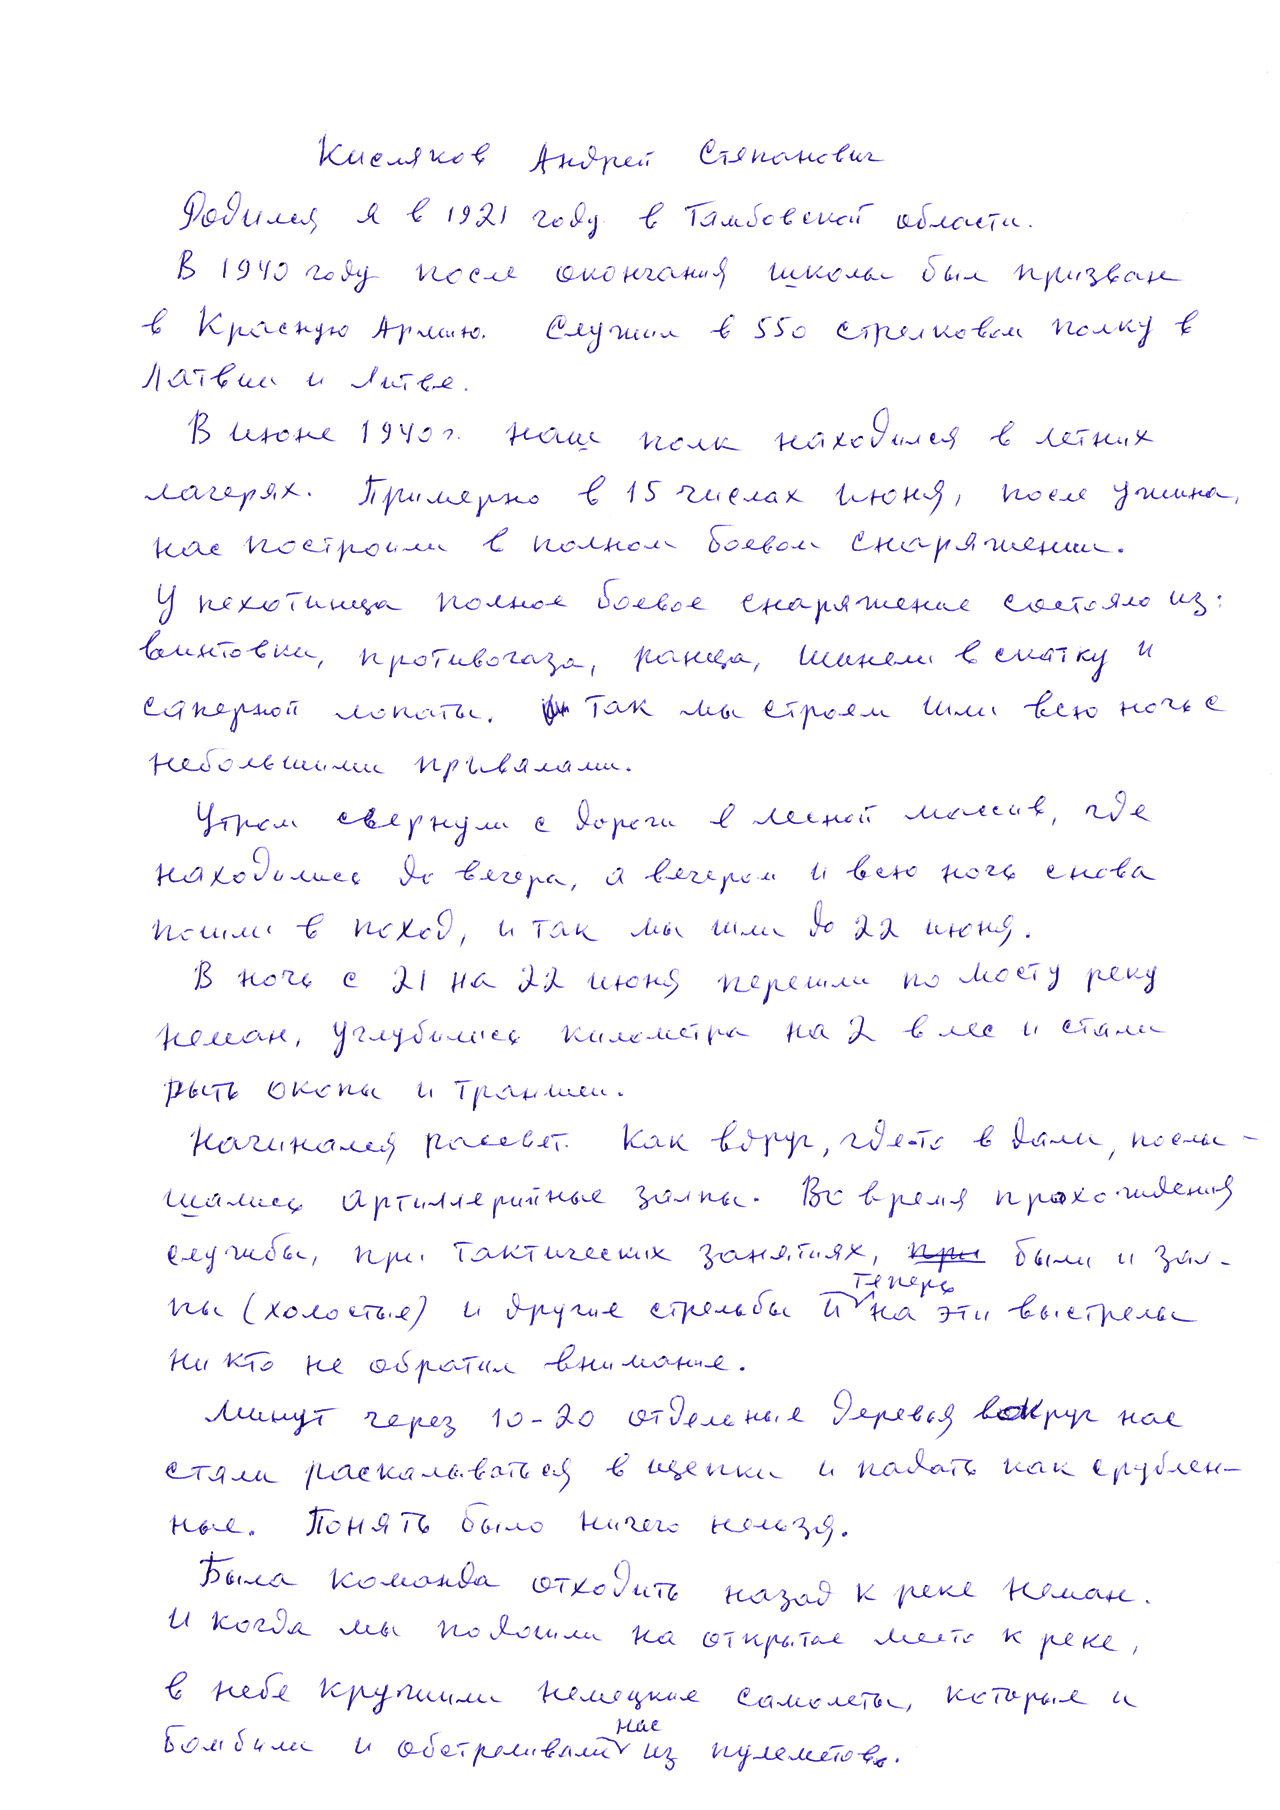 Кисляков Андрей Степанович
Родился я в 1921 году в Тамбовской области.
В 1940 году после окончания школы был призван
в Красную Армию. Служил в 550 стрелковом полку в
Латвии и Литве.
В июне 1940 г. наш полк находился в летних
лагерях. Примерно в 15 числах июня, после ужина,
нас построили в полном боевом снаряжении.
У пехотинца полное боевое снаряжение состояло из:
винтовки, противогаза, ранца, шинели в скатку и
саперной лопаты. Так мы строем шли всю ночь с
небольшими привалами.
Утром свернули с дороги в лесной массив, где
находились до вечера, а вечером и всю ночь снова
пошли в поход, и так мы шли до 22 июня.
В ночь с 21 на 22 июня перешли по мосту реку
Неман, углубились километра на 2 в лес и стали
рыть окопы и траншеи.
Начинался рассвет. Как вдруг, где-то в дали, послы-
шались артиллерийные залпы. Во время прохождения
службы, при тактических занятиях, при были и зал-
пы (холостые) и другие стрельбы и теперь на эти выстрелы
никто не обратил внимание.
Минут через 10-20 отдельные деревья вокруг нас
стали раскалываться в щепки и падать как срублен-
ные. Понять было ничего нельзя.
Была команда отходить назад к реке Неман.
И когда мы подошли на открытое место к реке,
в небе кружили немецкие самолеты, которые и
бомбили и обстреливали нас из пулеметов.